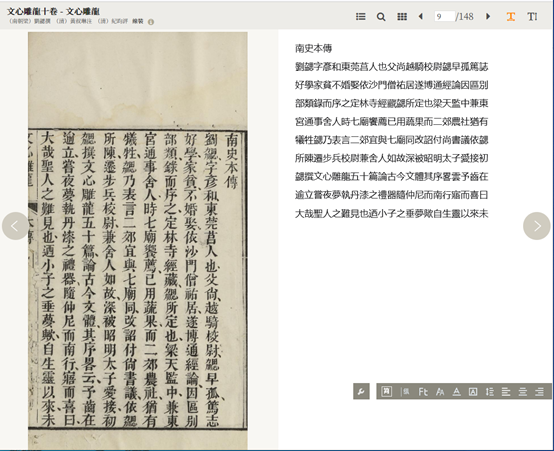 文心雕龍十卷 - 文心雕龍
（南朝梁）劉勰撰 （清）黃叔琳注 （清）紀昀評
9 /148
南史本傳
劉勰字彥和東莞莒人也父尙越騎校尉勰早孤篤志
好學家貧不婚娶依沙門僧祐居遂博通經論因區別
部類錄而序之定林寺經藏勰所定也梁天監中兼東
宮通事舍人時七廟饗薦已用蔬果而二郊農社猶有
犧牲勰乃表言二郊宜與七廟同改詔付尙書議依勰
所陳遷步兵校尉兼舍人如故深被昭明太子愛接初
勰撰文心雕龍五十篇論古今文體其序畧云予齒在
逾立嘗夜夢執丹漆之禮器隨仲尼而南行寤而喜曰
大哉聖人之難見也迺小子之垂夢歟自生靈以來未
南史本傳
劉勰字彥和東莞莒人也父尚越騎校尉勰早孤篤誌
好學家貧不婚娶依沙門僧祐居遂博通經論因區別
部類錄而序之定林寺經勰所定也梁天監中兼東
宮通事舍人時七廟饗薦已用蔬果而二郊農社猶有
犧牲勰乃表言二郊宜與七廟同改詔付尚書議依勰
所陳遷步兵校尉兼舍人如故深被昭明太子愛接初
勰撰文心雕龍五十篇論古今文體其序畧雲予齒在
逾立嘗夜夢執丹漆之禮器隨仲尼而南行寤而喜曰
大哉聖人之難見也迺小子之垂夢歟自生靈以來未